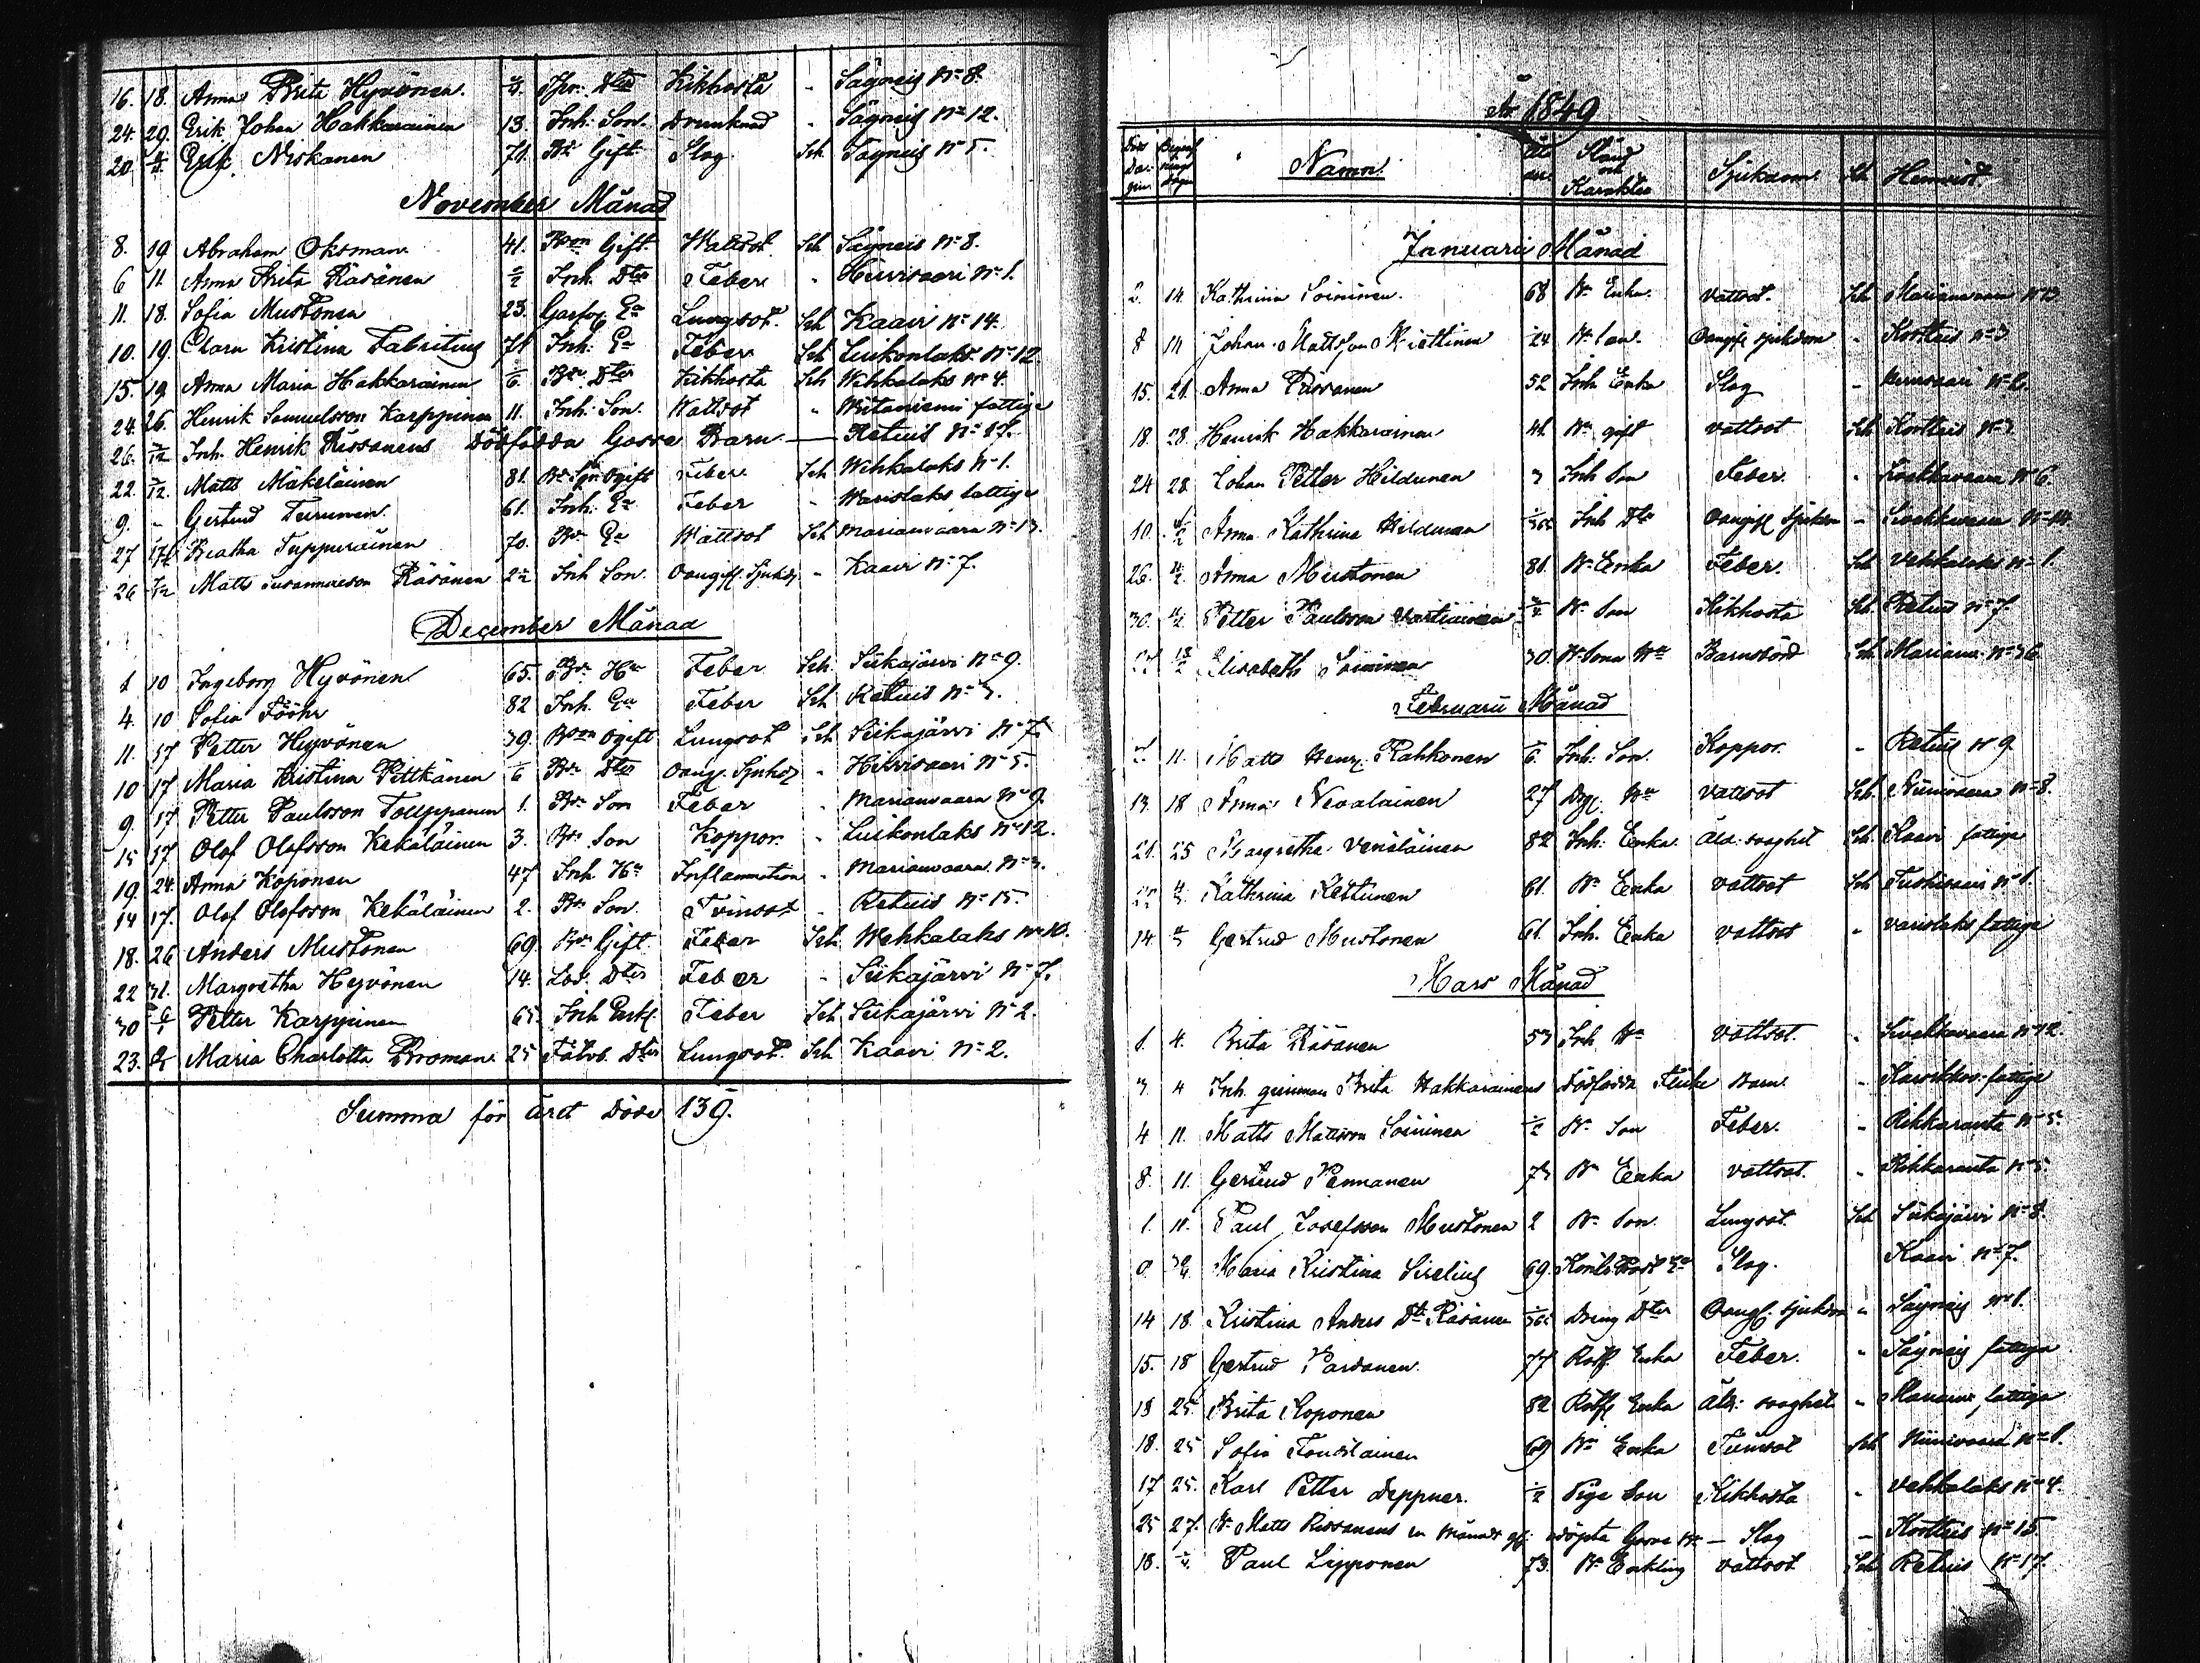 16. 18. Anna Brita Hyvönen. Kikhosta - Säyneis No 8.
24. 29. Erik Johan Hakkarainen 13. Inh. Son. Drunknad - Säyneis No 12.
20 Erik Niskanen 71. Bd. Gift Slag. Sch Säyneis No 5.
November Månad
8. 19 Abraham Oksman 41. Bdn Gift. Wattsot. Sch Säyneis No 8.
6 11. Anna Brita Räsänen Inh. Dtr Feber " Hirvisaari No 1.
11. 18. Sofia Mustonen 23. Lungsot. Sch Kaavi No 14.
10. 19. Clara Kristina Fabritius 71 Inh. Ea Feber Sch Luikonlaks No 12.
15. 19 Anna Maria Hakkarainen 1/6. Bd. Dtr Kikhosta Sch Wihkalaks No 4.
24. 26. Henrik Samuelsson Karppinen 11. Inh. Son. Wattsot " Writaniemi fattige
26. Inh. Henrik Rissanens Dödfödda Gosse Barn — Retuis No 17.
22. Matts Mäkeläinen 81. Feber Sch Wihkalaks No 1.
9. - Gertrud Turunen 61. Inh. Ea Feber - Waristaks fattige
27 Beatha Tuppurainen 70. Bd. Ea Wattsot Sch Marianvaara No 13.
26 Matts Räsänen Inh Son. Oangif. Sjukd. - Kaavi No 7.
December Månad
1 10 Ingeborg Hyvönen 65. Bd. Hu Feber Sch. Siikajärvi No 9.
4. 10 Sofia Fööhr 82 Inh. Ea Feber Sch Retuis No 3.
11. 17 Petter Hyvönen 39. Bdn ogift Lungsot Sch Siikajärvi No 7.
10 17 Maria Kristina Pitkänen 1/6 Bd. Dtr Oang. Sjukd. - Hirvisaari No 5.
9. 17 Petter Paulsson Tolppanen 1. Bd. Son Feber - Marianvaara No 9.
15 17 Olof Olofsson Kekäläinen 3. Bd. Son Koppor. - Luikonlaks No 12.
19. 24. Anna Koponen 47 Inh. Hu Inflammation - Marianvaara No 3.
14 17. Olof Olofsson Kekäläinen 2. Bd. Son. Tvinsot - Retuis No 15.
18. 26 Anders Mustonen 69. Bd. Gift Feber Sch. Wehkalaks No 10.
22 31. Margretha Hyvönen 14. Dtr Feber - Siikajärvi No 7.
30 6/1 Petter Karppinen 65. Inh Enkl. Feber Sch Siikajärvi No 2.
23. Maria Charlotta Brooman 25 Dtr Lungsot. Sch Kaavi No 2.
Summa för året Döde 139.
År 1849
Döds Dagen Begrafnings Dagen Namn. Ålder. Stånd och Karakter Sjukdom Sch Hemvist.
Januarii Månad
2. 14. Kathrina Soininen. 68 Bd. Enka. Vattsot. Sch Marianvaara No 13.
8 14 Johan Mattsson Miettinen 24 Bd. Son. Oangif. Sjukdom - Kortteis No 3
15. 21. Anna Rissanen 52 Inh Enka Slag -
18. 28. Henrik Hakkarainen 41. Bd. gift Vattsot Sch Kortteis No 3.
24 28. Johan Petter Hildunen 3 Inh Son Feber. - Sivakkavaara No 6.
10. 4/2 Anna Kathrina Hildunen 1/365 Inh Dtr Oangif. Sjukdom - Sivakkavaara No 14.
26. 4/2 Anna Mustonen 81. Bd. Enka Feber. Sch Vehkalaks No 1.
30. Petter Paulsson Martikainen Bd. Son Kikhosta Sch. Retuis No 7.
Elisabeth Soininen 30. Barnsbörd Sch. No 36
Februarii Månad
11. Matts Henr. Rahkonen 1/6. Inh. Son. Koppor. - Retuis No 9.
13. 18 Anna Nevalainen 27 Vattsot Sch. Niinivaara No 8.
21. 25 Margretha Venäläinen 82 Inh. Enka. Åld. svaghet Sch. Kaavi fattige
22 Kathrina Kettunen 61. Bd. Enka Vattsot Sch No 1.
14 Gertrud Mustonen 61. Inh. Enka Vattsot - Varistaks fattige
Mars Månad
1. 4. Brita Räsänen 53 Inh Hu Vattsot. - Sivakkavaara No 12.
3. 4 Inh qvinnan Brita Hakkarainens Dödfödda Flicke Barn. - fattige
4 11. Matts Mattsson Soininen 1/2 Bd. Son Feber. - Rikkaranta No 5.
8. 11. Gertrud Pennanen 73 Bd Enka Vattsot. - Rikkaranta No 5.
1. 11. Paul Josefsson Mustonen 2 Bd. Son. Lungsot. Sch Siikajärvi No 8.
Maria Kristina Sirelius 69. Slag. Kaavi No 7.
14 18. Kristina Anders Dtr Räsänen 1/365 Dreng Dtr Oangif. Sjukdom - Säyneis No 1.
15. 18 Gertrud Parsanen. 77 Rotf. Enka Feber. - Säyneis fattige
18 25. Brita Koponen 82 Rotf. Enka Åld. svaghet - fattige
18. 25 Sofia 69 Bd. Enka Tvinsot Sch Niinivaara No 1.
17 25. Karl Petter Deppner. 1/2 Pige Son Kikhosta - Vehkalaks No 4.
25 27. Bd. Matts Rissanens en Månads gl. odöpta Gosse Br. — Slag - Kortteis No 15.
18. Paul Lipponen 73. Bd. Enkling Vattsot Sch Retuis No 17.